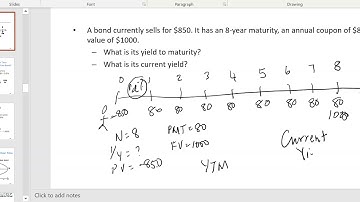 • A bond currently sells for $850. It has an 8-year maturity, an annual coupon of $8
value of $1000.
– What is its yield to maturity?
– What is its current yield?
0 1 2 3 4 5 6 7 8
-850 80 80 80 80 80 80 80 80
1000
N = 8 PMT = 80
I/Y = ? FV = 1000
PV = -850 YTM
Current
Yi
Click to add notes